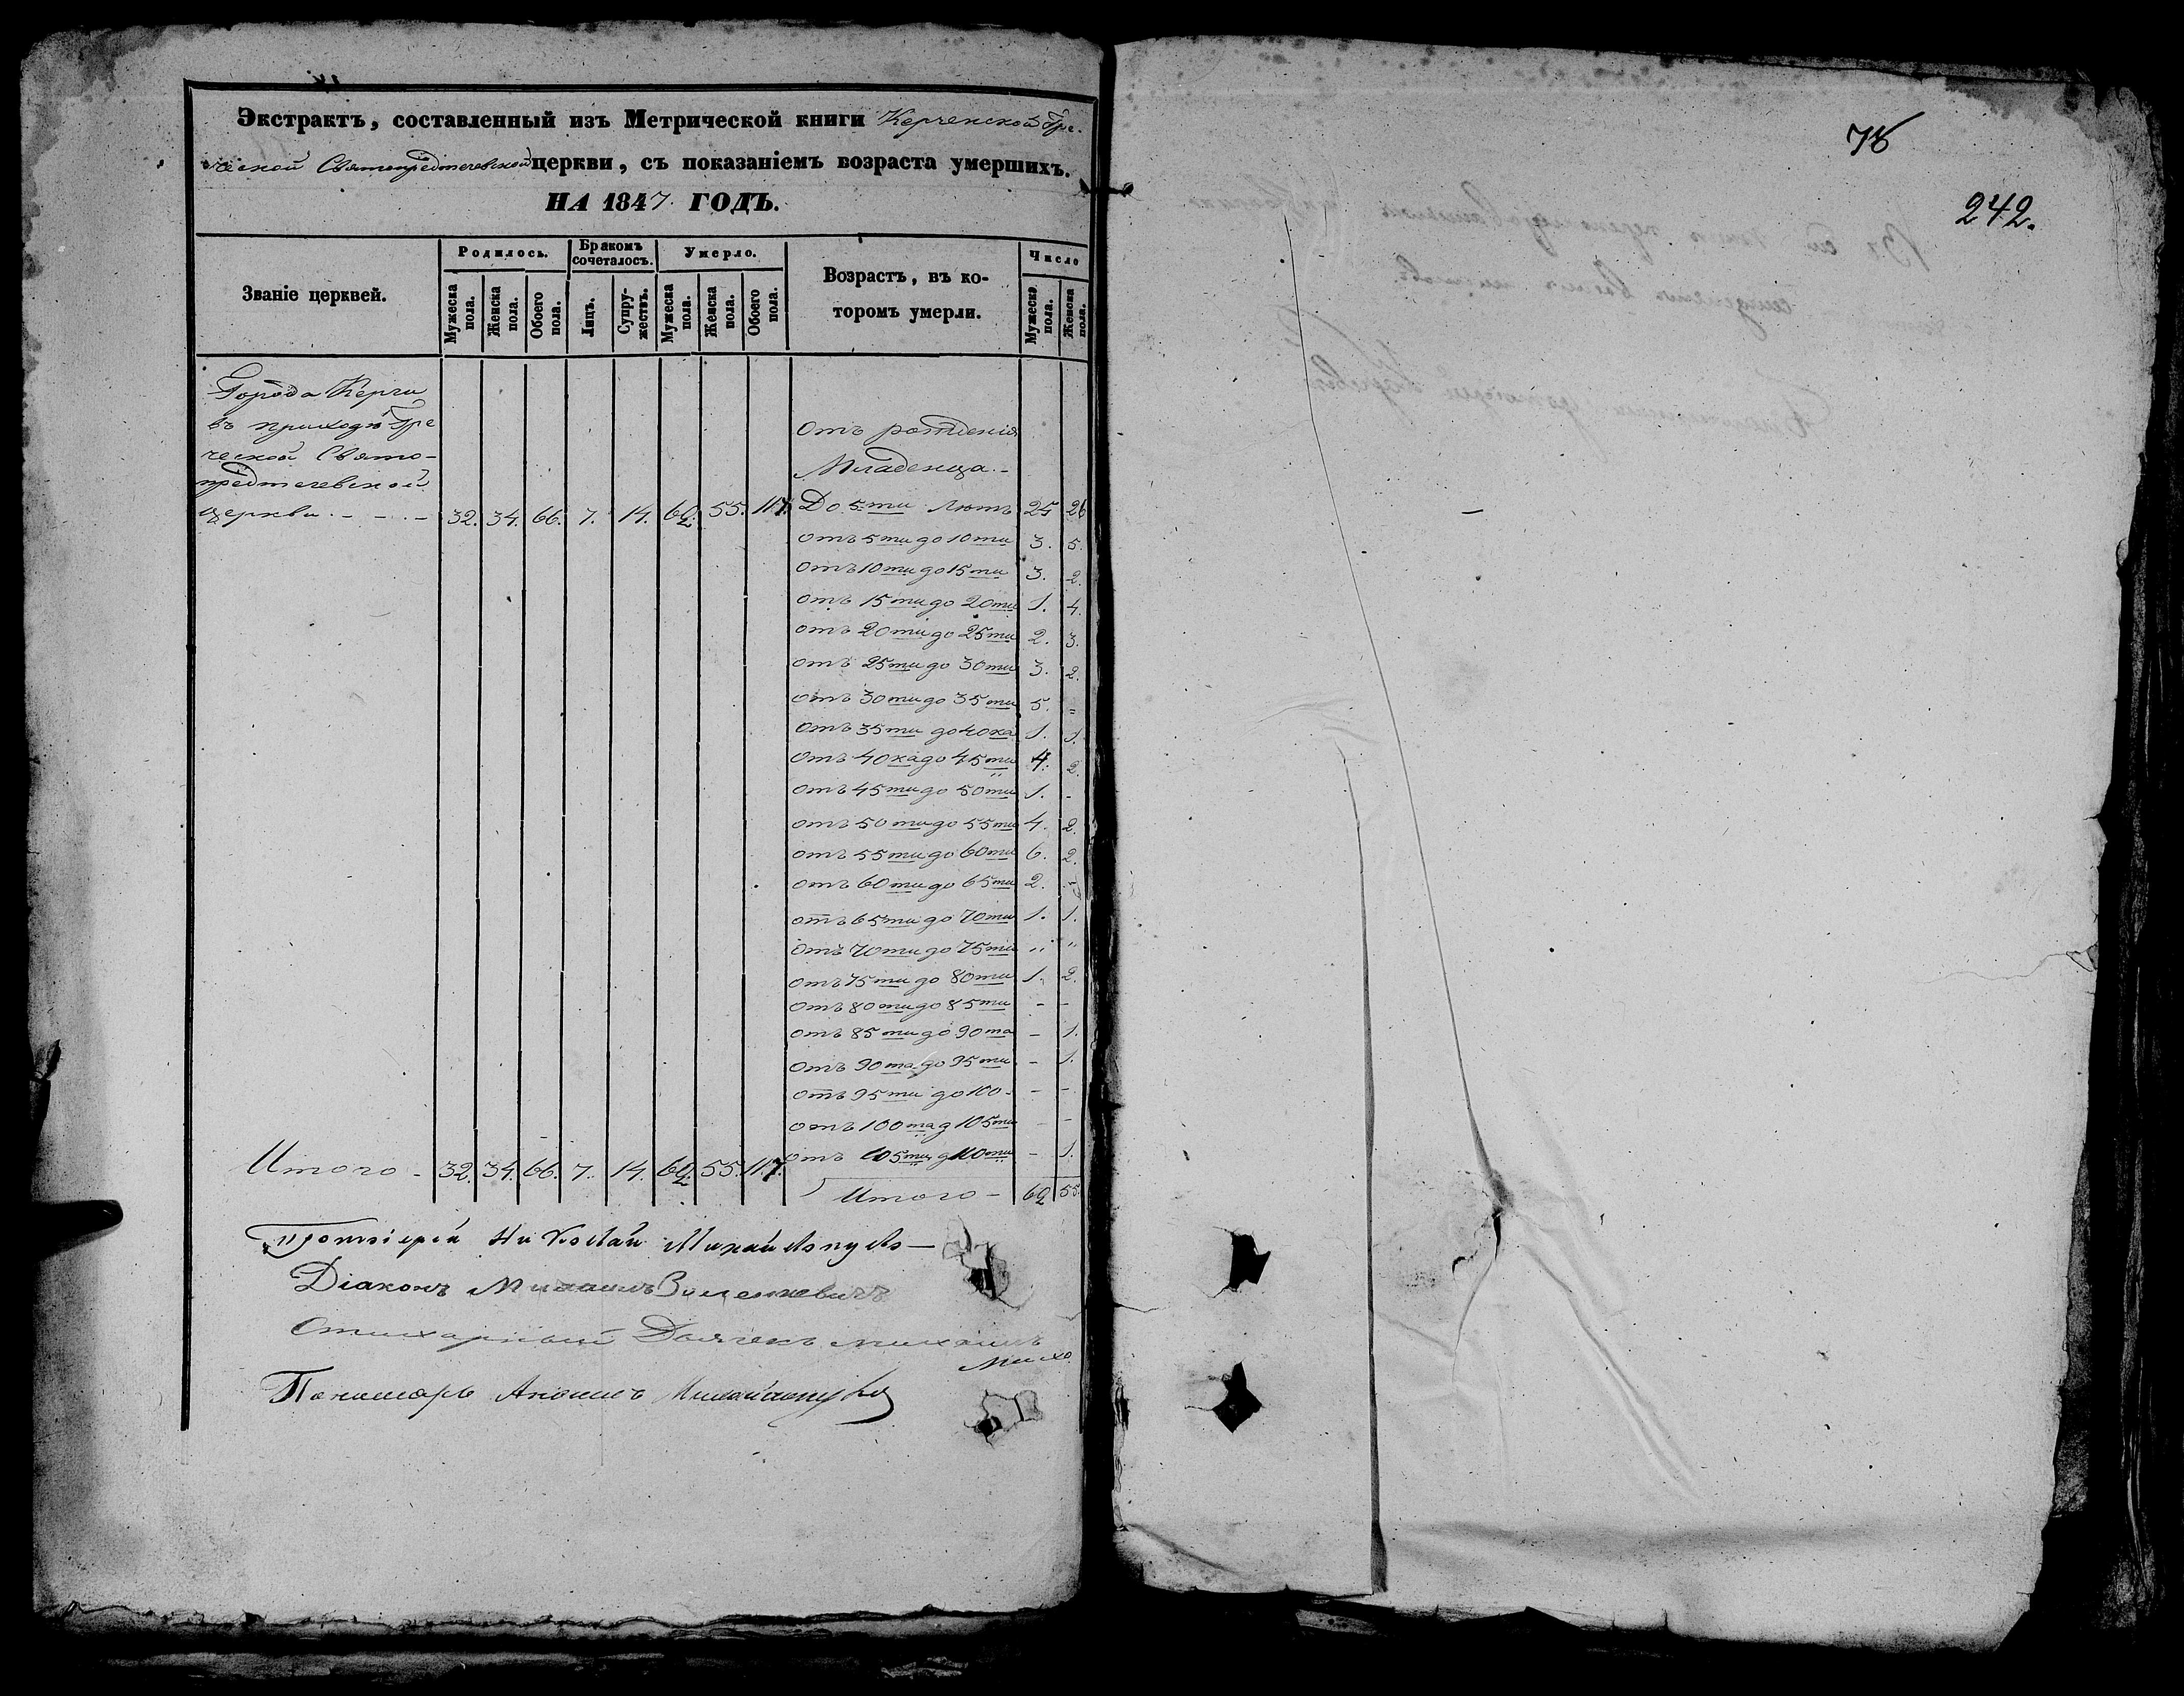 Экстрактъ, составленный изъ Метрической книги Керченской Гре-
ческой Святопредтечевской церкви, съ показаніемъ возраста умершихъ.
НА 1847 ГОДЪ.
Званіе церквей.
Родилось.
Бракомъ сочеталось.
Умерло.
Возрастъ, въ ко-
торомъ умерли.
Число
Мужеска пола.
Женска пола.
Обоего пола.
Лицъ.
Супру-жествъ.
Мужеска пола.
Женска пола.
Обоего пола.
Мужеска пола.
Женска пола.
Города Керчи
въ приходѣ Гре
ческой Свято-
предтечевской
церкви. - - - 32. 34. 66. 7. 14. 62. 55. 117.
Отъ рожденія
Младенца. -
До 5-ти лѣтъ 25 26
отъ 5ти до 10ти 3. 5.
отъ 10ти до 15ти 3. 2.
отъ 15ти до 20ти 1. 4.
отъ 20ти до 25ти 2. 3.
отъ 25ти до 30ти 3. 2.
отъ 30ти до 35ти 5. =
отъ 35ти до 40ка 1. 1.
отъ 40ка до 45ти 4. 2.
отъ 45ти до 50ти 1. -
отъ 50ти до 55ти 4. 2.
отъ 55ти до 60ти 6. 2.
отъ 60ти до 65ти 2. -
отъ 65ти до 70ти 1. 1.
отъ 70ти до 75ти " "
отъ 75ти до 80ти 1. 2.
отъ 80ти до 85ти - -
отъ 85ти до 90та - 1.
отъ 90та до 95ти - 1.
отъ 95ти до 100 - - -
отъ 100та д 105ти - -
отъ 105ти д 110ти - 1.
Итого - 32. 34. 66. 7. 14. 62. 55. 117.
Итого - 62 55.
Протоіерей Николай Михайлопуло
Діаконъ Михаилъ
Стихарный Дьячекъ Михаилъ
Пономарь Михайлопуло
78
242.